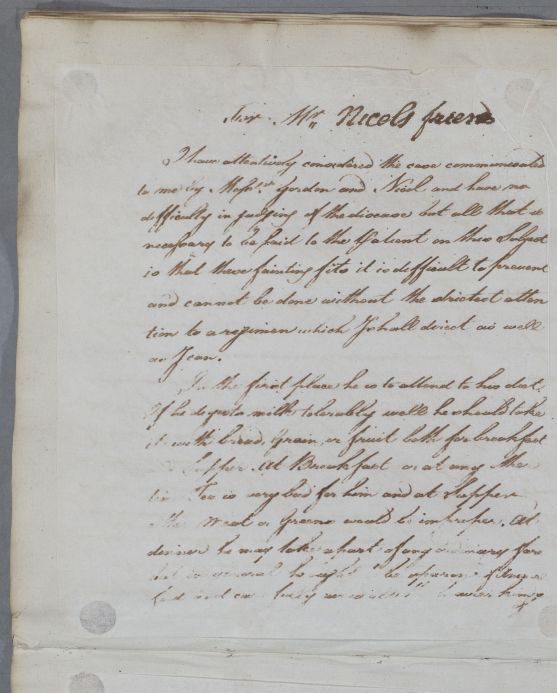 For Mr. Nicols friend
I have attentively considered the case communicated
to me by Messrs Gordon and Nicol and have no
difficulty in judging of the disease but all that is
necessary to be said to the Patient on this Subject
is that these fainting fits it is difficult to prevent
and cannot be done without the strictest atten
tion to a regimen which I shall direct as well
as I can.
In the first place he is to attend to his diet.
If he digests milk tolerably well he should take
it with bread, grain, or fruit both for breakfast
Supper. At Breakfast or at any
Tea is very bad for him and at Supper
Meat or Greens would be improper. At
dinner he may take a part of any ordinary fare
but in general he ought to be sparing
and